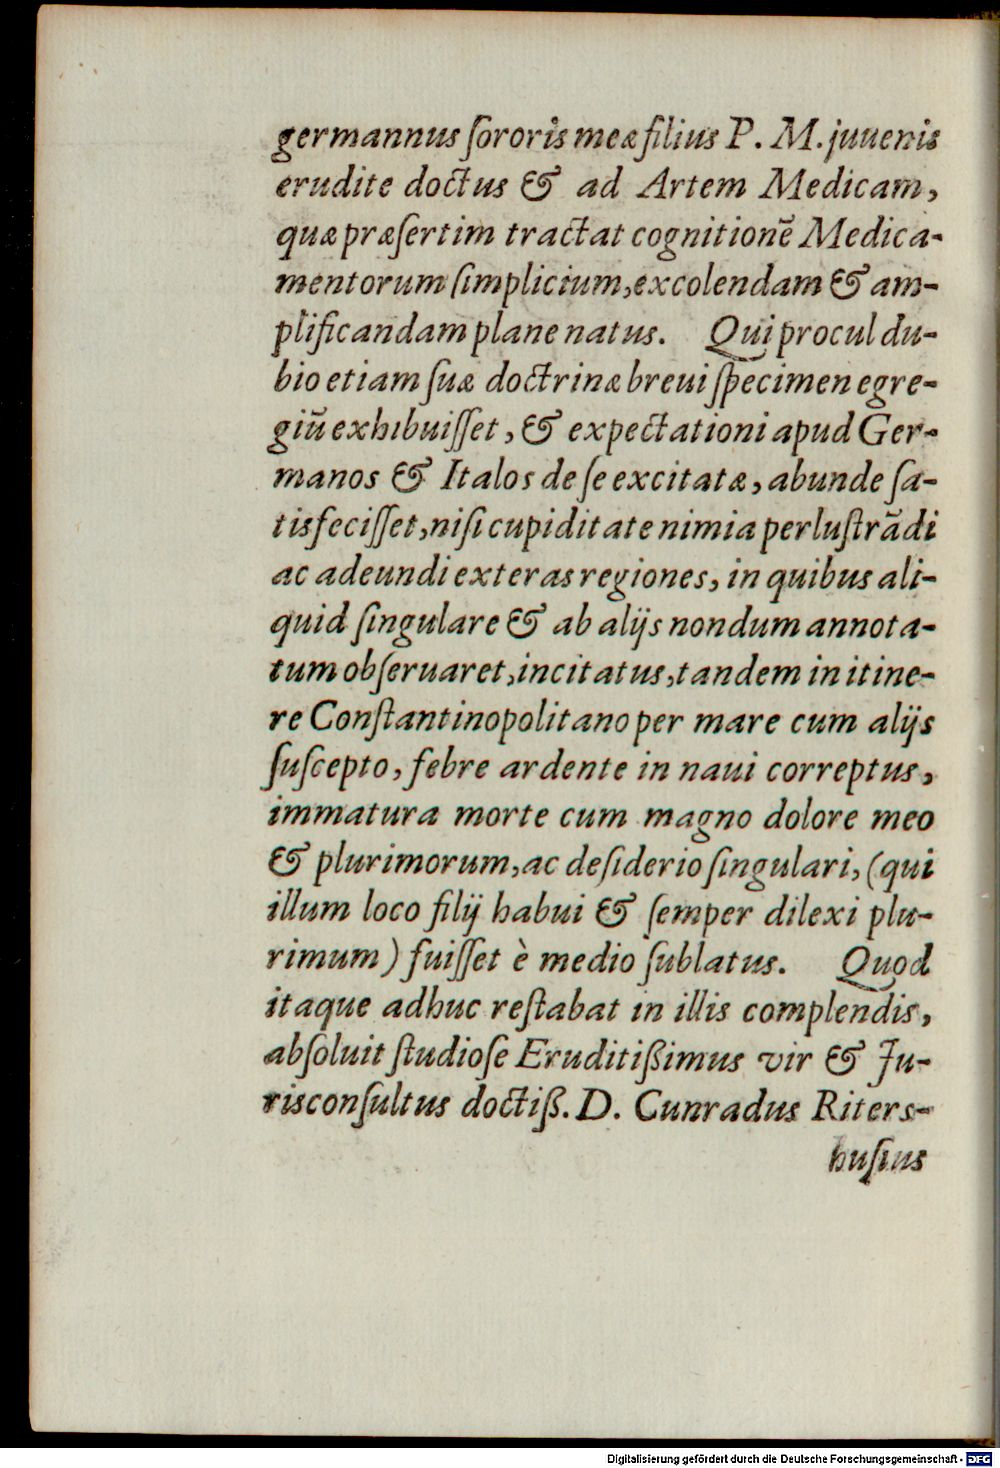 germannus ſororis meæ filius P. M. juuenis
erudite doctus & ad Artem Medicam,
quæ præſertim tractat cognitionẽ Medica-
mentorum ſimplicium, excolendam & am-
plificandam plane natus. Qui procul du-
bio etiam ſuæ doctrinæ breui ſpecimen egre-
giũ exhibuiſſet, & expectationi apud Ger-
manos & Italos de ſe excitatæ, abunde ſa-
tisfeciſſet, niſi cupiditate nimia perluſtrãdi
ac adeundi exteras regiones, in quibus ali-
quid ſingulare & ab alijs nondum annota-
tum obſeruaret, incitatus, tandem in itine-
re Conſtantinopolitano per mare cum alijs
ſuſcepto, febre ardente in naui correptus,
immatura morte cum magno dolore meo
& plurimorum, ac deſiderio ſingulari, (qui
illum loco filij habui & ſemper dilexi plu-
rimum) fuiſſet è medio ſublatus. Quod
itaque adhuc reſtabat in illis complendis,
abſoluit ſtudioſe Eruditißimus vir & Ju-
risconſultus doctiß. D. Cunradus Riters-
huſius
Digitalisierung gefördert durch die Deutsche Forschungsgemeinschaft - DFG